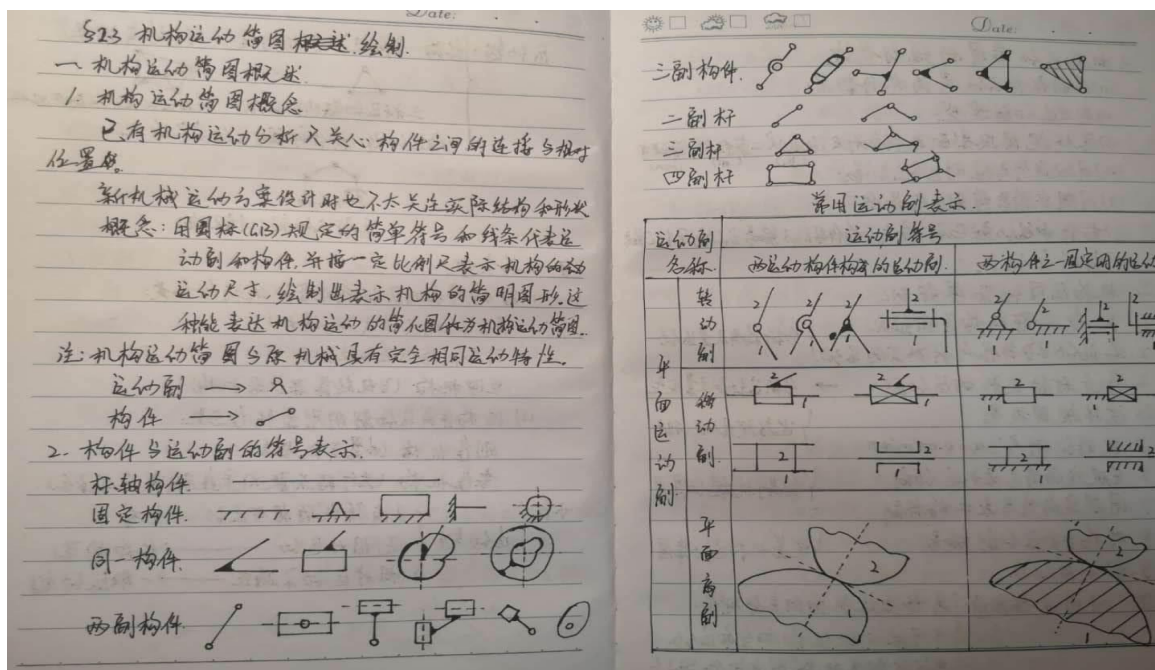 Date:
§2.3 机构运动简图概述.绘制.
一.机构运动简图概述.
1. 机构运动简图概念
已有机构运动分析只关心构件之间的连接与相对
位置
新机械运动方案设计时也不太关注实际结构和形状
概念:用国标(GB)规定的简单符号和线条代表运
动副和构件,并按一定比例尺表示机构的
运动尺寸,绘制出表示机构的简明图形.这
种能表达机构运动的简化图称为机构运动简图.
注:机构运动简图与原机械具有完全相同运动特性.
运动副 →
构件 →
2. 构件与运动副的符号表示.
杆.轴构件.
固定构件.
同一构件.
两副构件.
Date:
三副构件.
二副杆
三副杆
四副杆
常用运动副表示.
运动副
名称.
运动副符号
两运动构件构成的运动副.
两构件之一固定时的运动
平面运动副
转动副
2 2 2 2
1 1 1 1
2 2 2 2
1 1 1
移动副.
2 2
1 1
2 2
1 1
2 2
1
2 2
1 1
平面高副
2
1
2
1